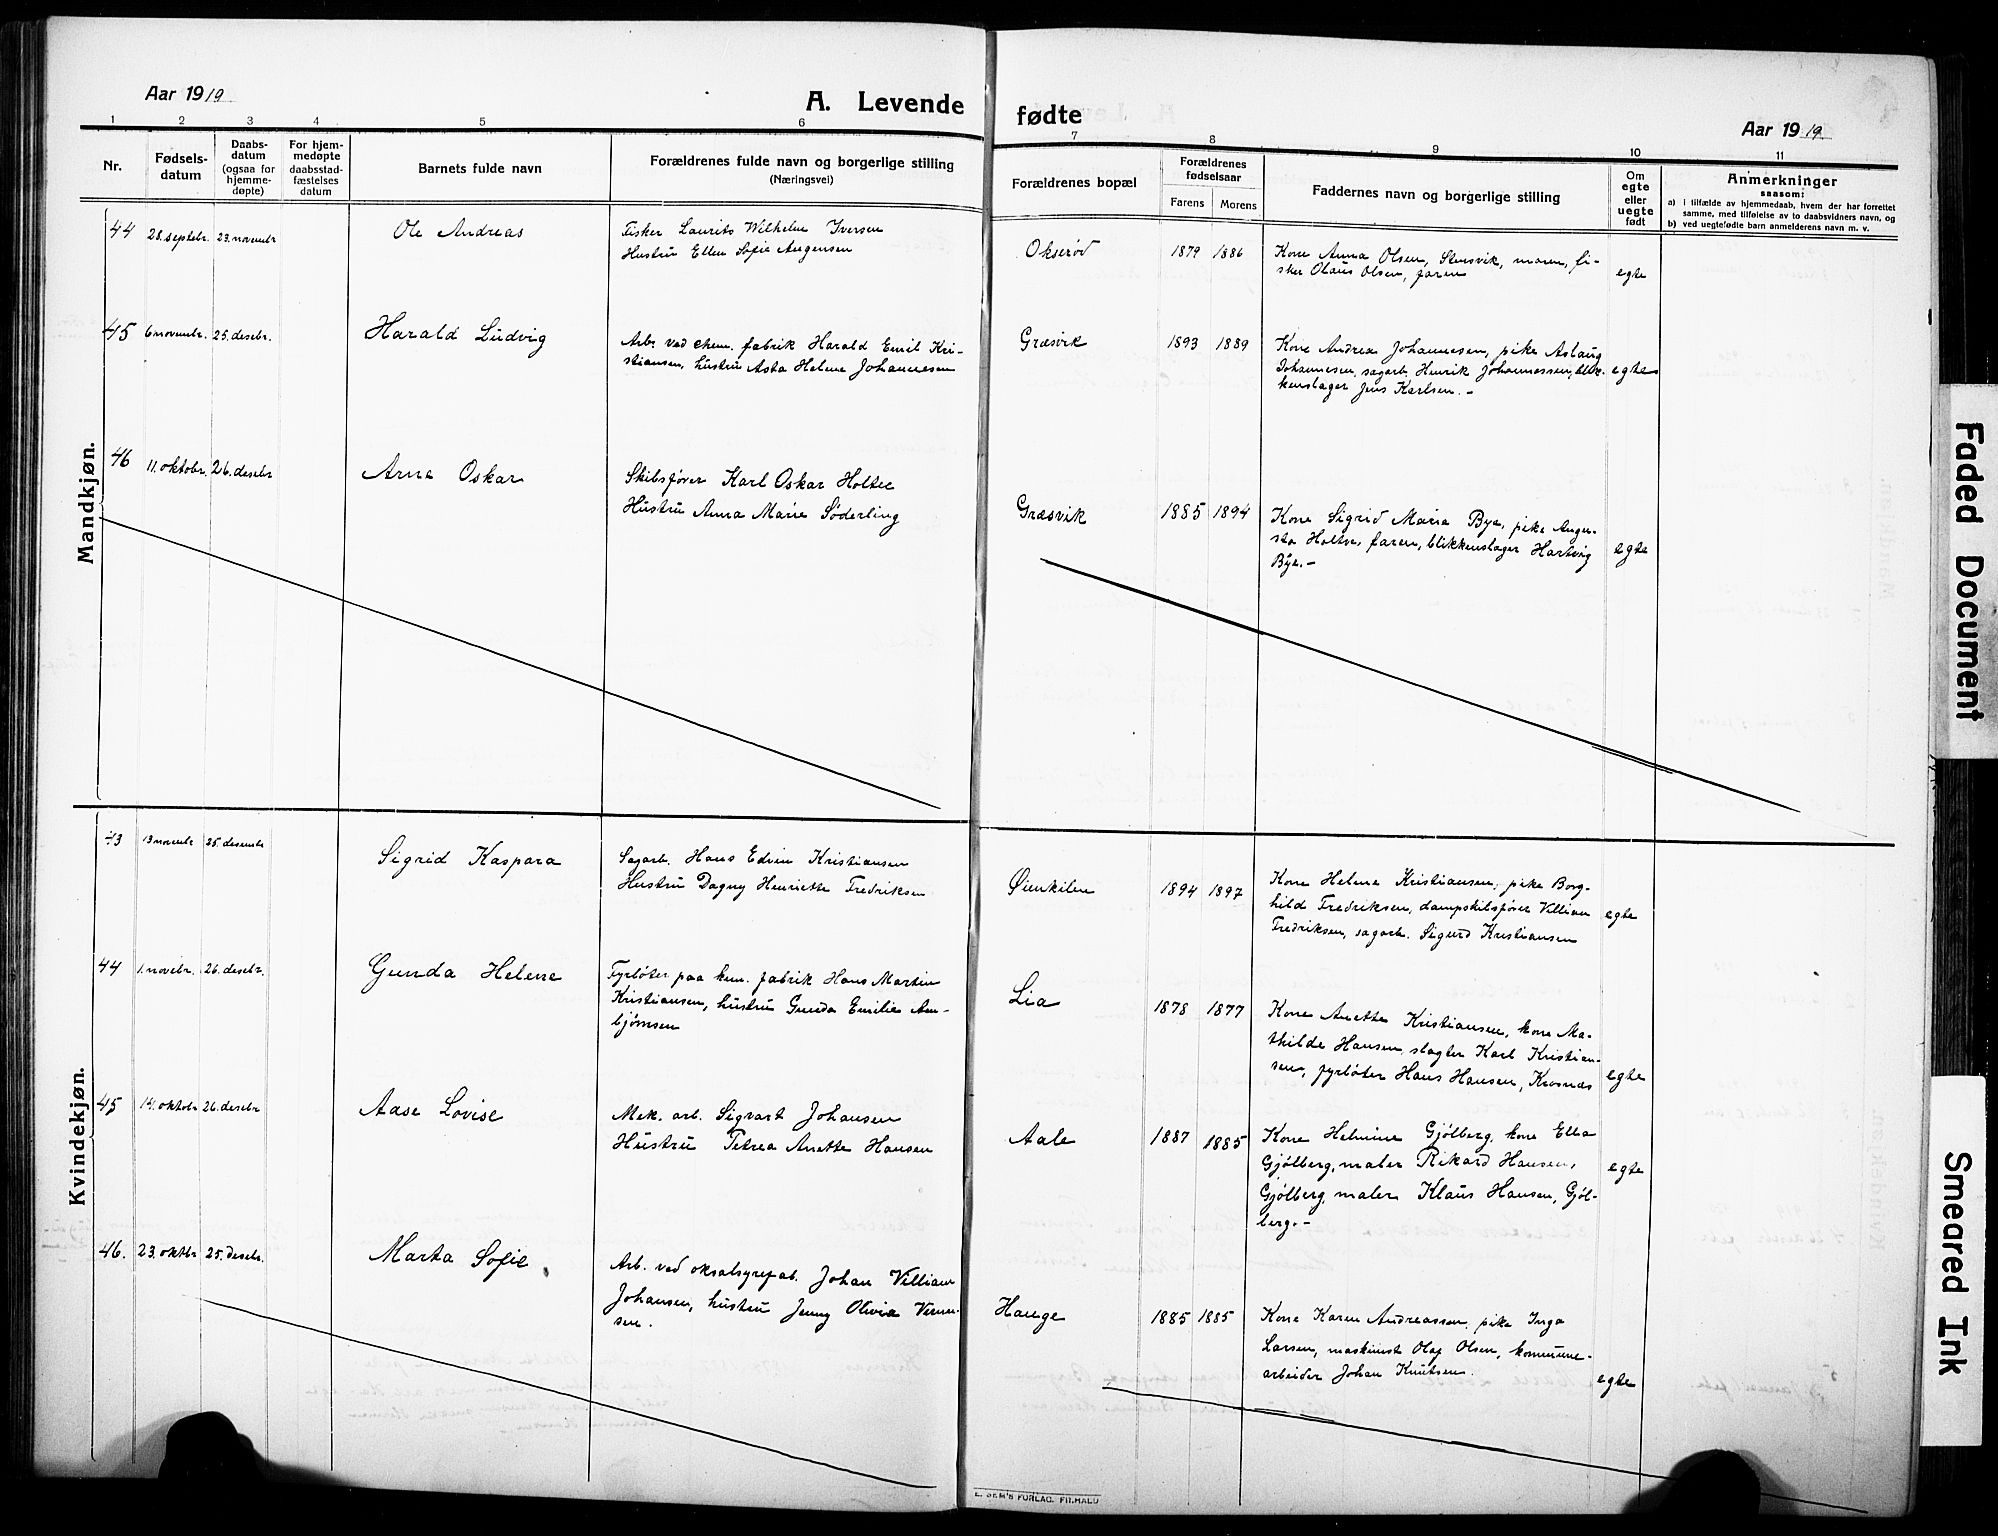 Aar 1919
A. Levende
fødte
Aar 1919
1 2 3 4 5 6 7 8 9 10 11
Nr.
Fødsels-
datum
Daabs-
datum
(ogsaa for
hjemme-
døpte)
For hjem-
medøpte
daabsstad-
fæstelses
datum
Barnets fulde navn
Forældrenes fulde navn og borgerlige stilling
(Næringsvei)
Forældrenes bopæl
Forældrenes
fødselsaar
Farens Morens
Faddernes navn og borgerlige stilling
Om
egte
eller
uegte
født
Anmerkninger
saasom:
a) i tilfælde av hjemmedaab, hvem der har forrettet
samme, med tilføielse av to daabsvidners navn, og
b) ved uegtefødte barn anmelderens navn m. v.
Mandkjøn.
44 28. septebr. 23. novembr
Ole Andreas
Fisker Laurits Wilhelm Iversen
Hustru Ellen Sofie Augensen
Okserød
1879 1886
Kone Anna Olsen, Stensvik, moren, fi-
sker Olaus Olsen, faren
egte
45 6 novembr. 25. desebr.
Harald Ludvig
Arb. ved chem. fabrik Harald Emil Kri-
stiansen, hustru Asta Helene Johannesen
Græsvik
1893 1889
Kone Andrea Johannesen, pike Aslaug
Johannesen, sagarb. Henrik Johannessen, blik-
kenslager Jens Karlsen. -
egte
46 11. oktobr. 26. desebr
Arne Oskar
Skibsfører Karl Oskar Holtee
Hustru Anna Marie Söderling
Græsvik
1885 1894
Kone Sigrid Marie Bye, pike Augu-
sta Holte, faren, blikkenslager Hartvig
Bye. -
egte
Kvindekjøn.
43 13 novembr 25. desembr
Sigrid Kaspara
Sagarb. Hans Edvin Kristiansen
Hustru Dagny Henriette Fredriksen
Øienkilen
1894 1897
Kone Helene Kristiansen, pike Borg-
hild Fredriksen, dampskibsfører Villiam
Fredriksen, sagarb. Sigurd Kristiansen
egte
44 1. novebr. 26. desebr.
Gunda Helene
Fyrbøter paa kem. fabrik Hans Martin
Kristiansen, hustru Gunda Emilie Arn-
bjørnsen
Lia
1878 1877
Kone Anette Kristiansen, kone Ma-
thilde Hansen, slagter Karl Kristian-
sen, fyrbøter Hans Hansen, Krosnæs
egte
45 14. oktobr 26. desebr
Aase Lovise
Mek. arb. Sigvart Johansen
Hustru Petrea Anette Hansen
Aale
1887 1885
Kone Helmine Gjølberg, kone Ella
Gjølberg, maler Rikard Hansen,
Gjølberg, maler Klaus Hansen, Gjøl-
berg. -
egte
46. 23. oktbr 25. desebr.
Marta Sofie
Arb. ved oksalsyrefab. Johan Villiam
Johansen, hustru Jenny Olivia Vernn-
sen.
Hauge
1885 1885
Kone Karen Andreassen, pike Inga
Larsen, maskinist Olaf Olsen, kommune-
arbeider Johan Knutsen.
egte
E. SEM'S FORLAG. FR.HALD
Faded Document
Smeared Ink